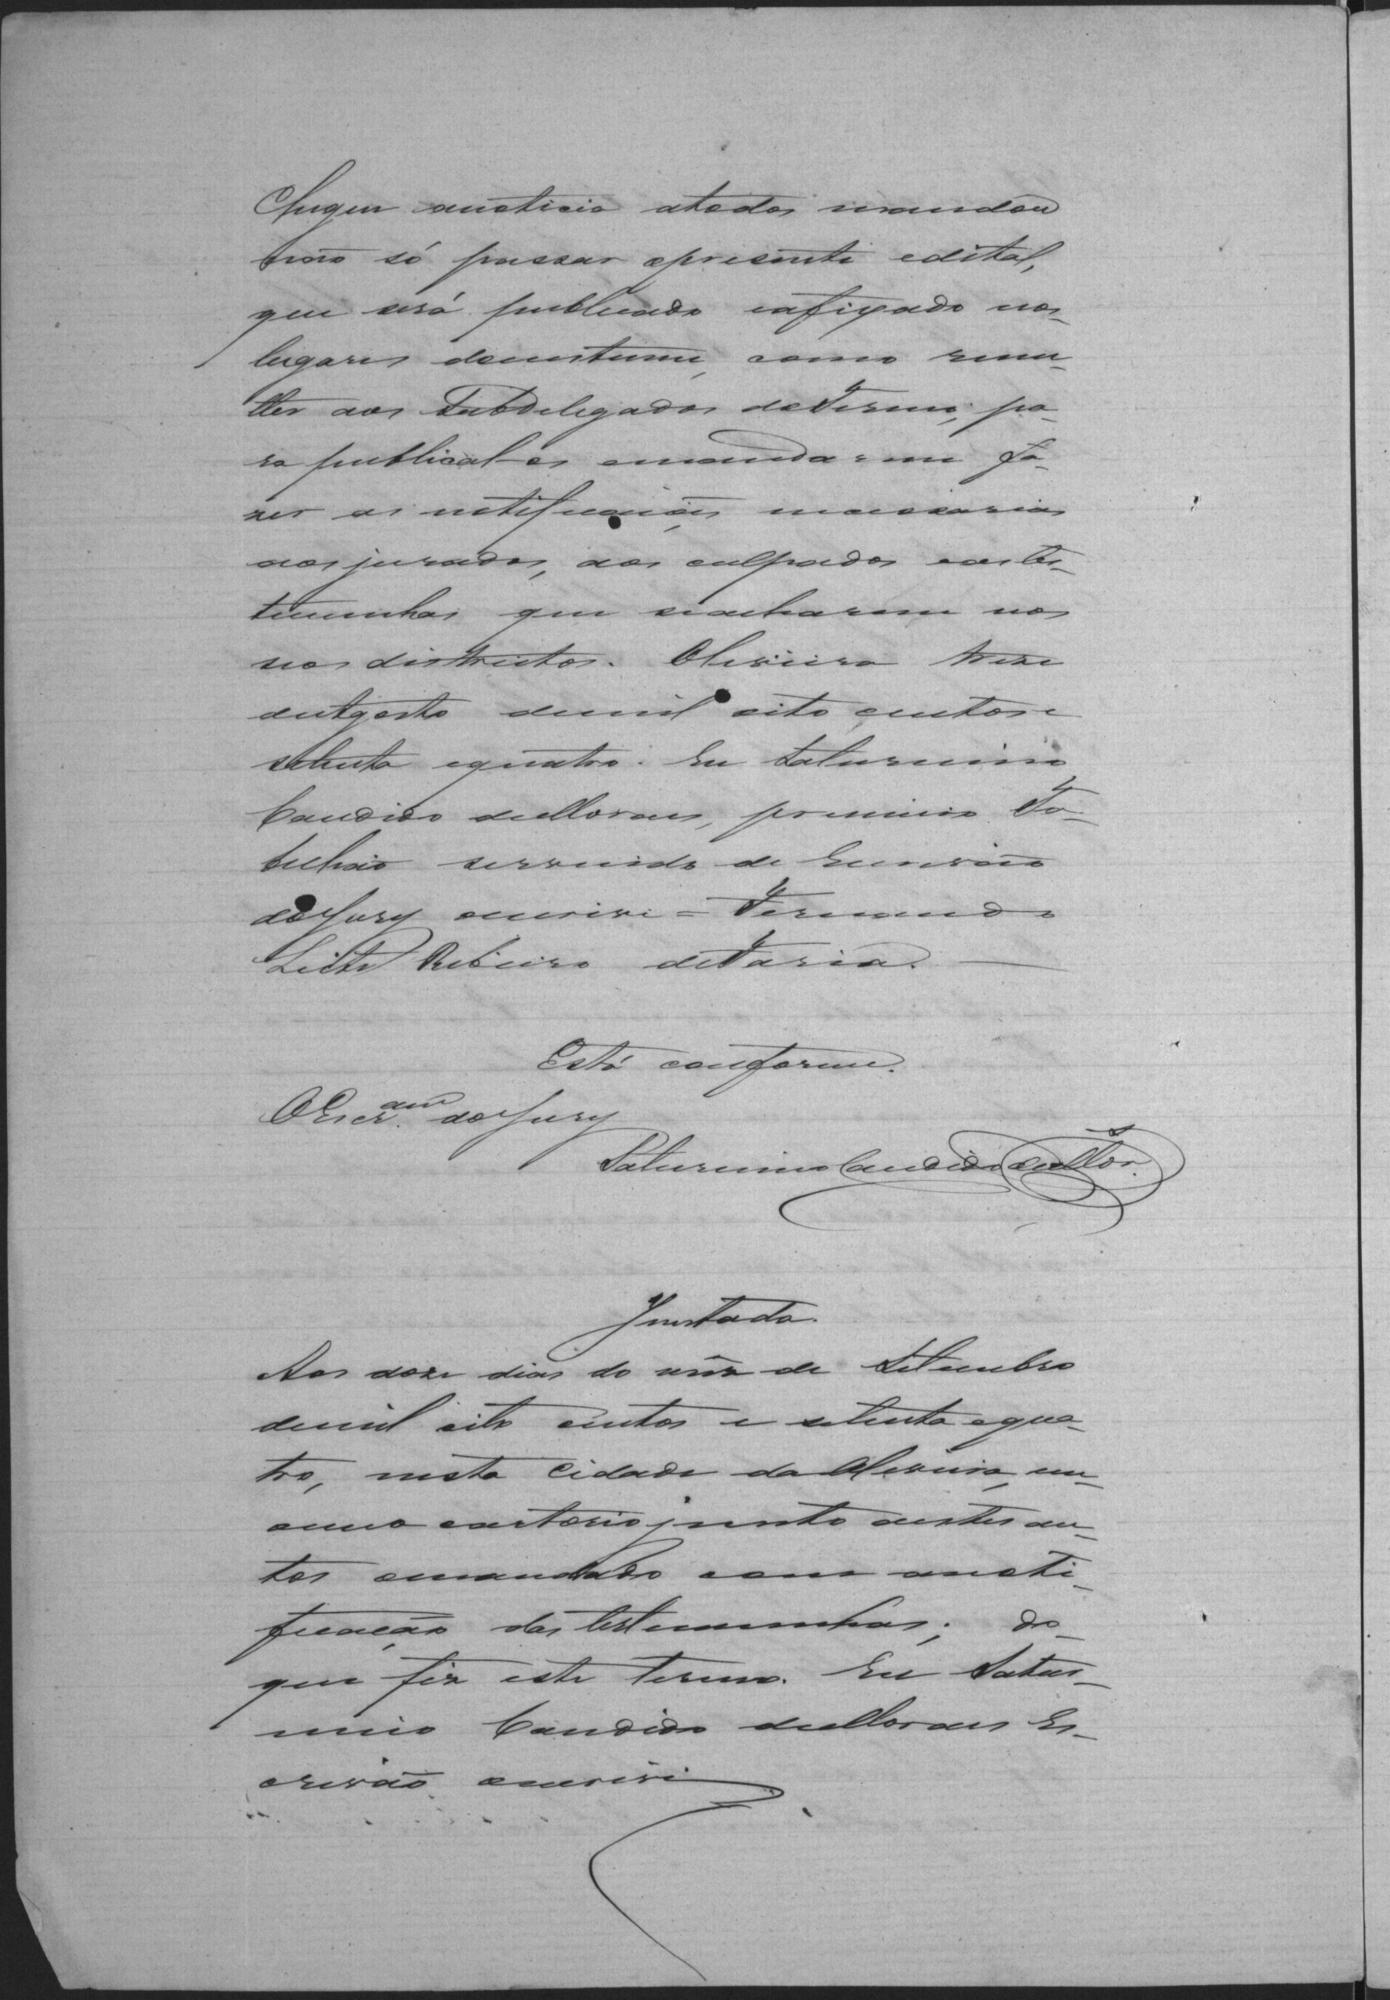 Chegue anoticia atodos mandou
não só passar opresente edital,
que será publicado eafixado nos
lugares decustume, como reme-
tter aos Subdelegados doTermo, pa-
ra publical-os emandarem fa-
zer as notificações necessarias
aos jurados, aos culpados eastes-
timunhas que seacharem nos
seos districtos. Oliveira treze
deAgosto demil oito centos e
setenta equatro. Eu Saturnino
Candido deMoraes, primeiro Ta-
bellião servindo de Escrivão
doJury oescrevi = Fernando
Leite Ribeiro deFaria.
Está conforme.
OEscr.am doJury
Saturnino Candido deMor.s
Juntada.
Aos doze dias do mez de Setembro
demil oito centos e setenta equa-
tro, nesta Cidade da Oliveira, em-
meo cartorio junto aestes au-
tos omandado com anoti-
ficação das testemunhas; do-
que fiz este termo. Eu Satur-
nino Candido deMoraes Es-
crivão oescrevi